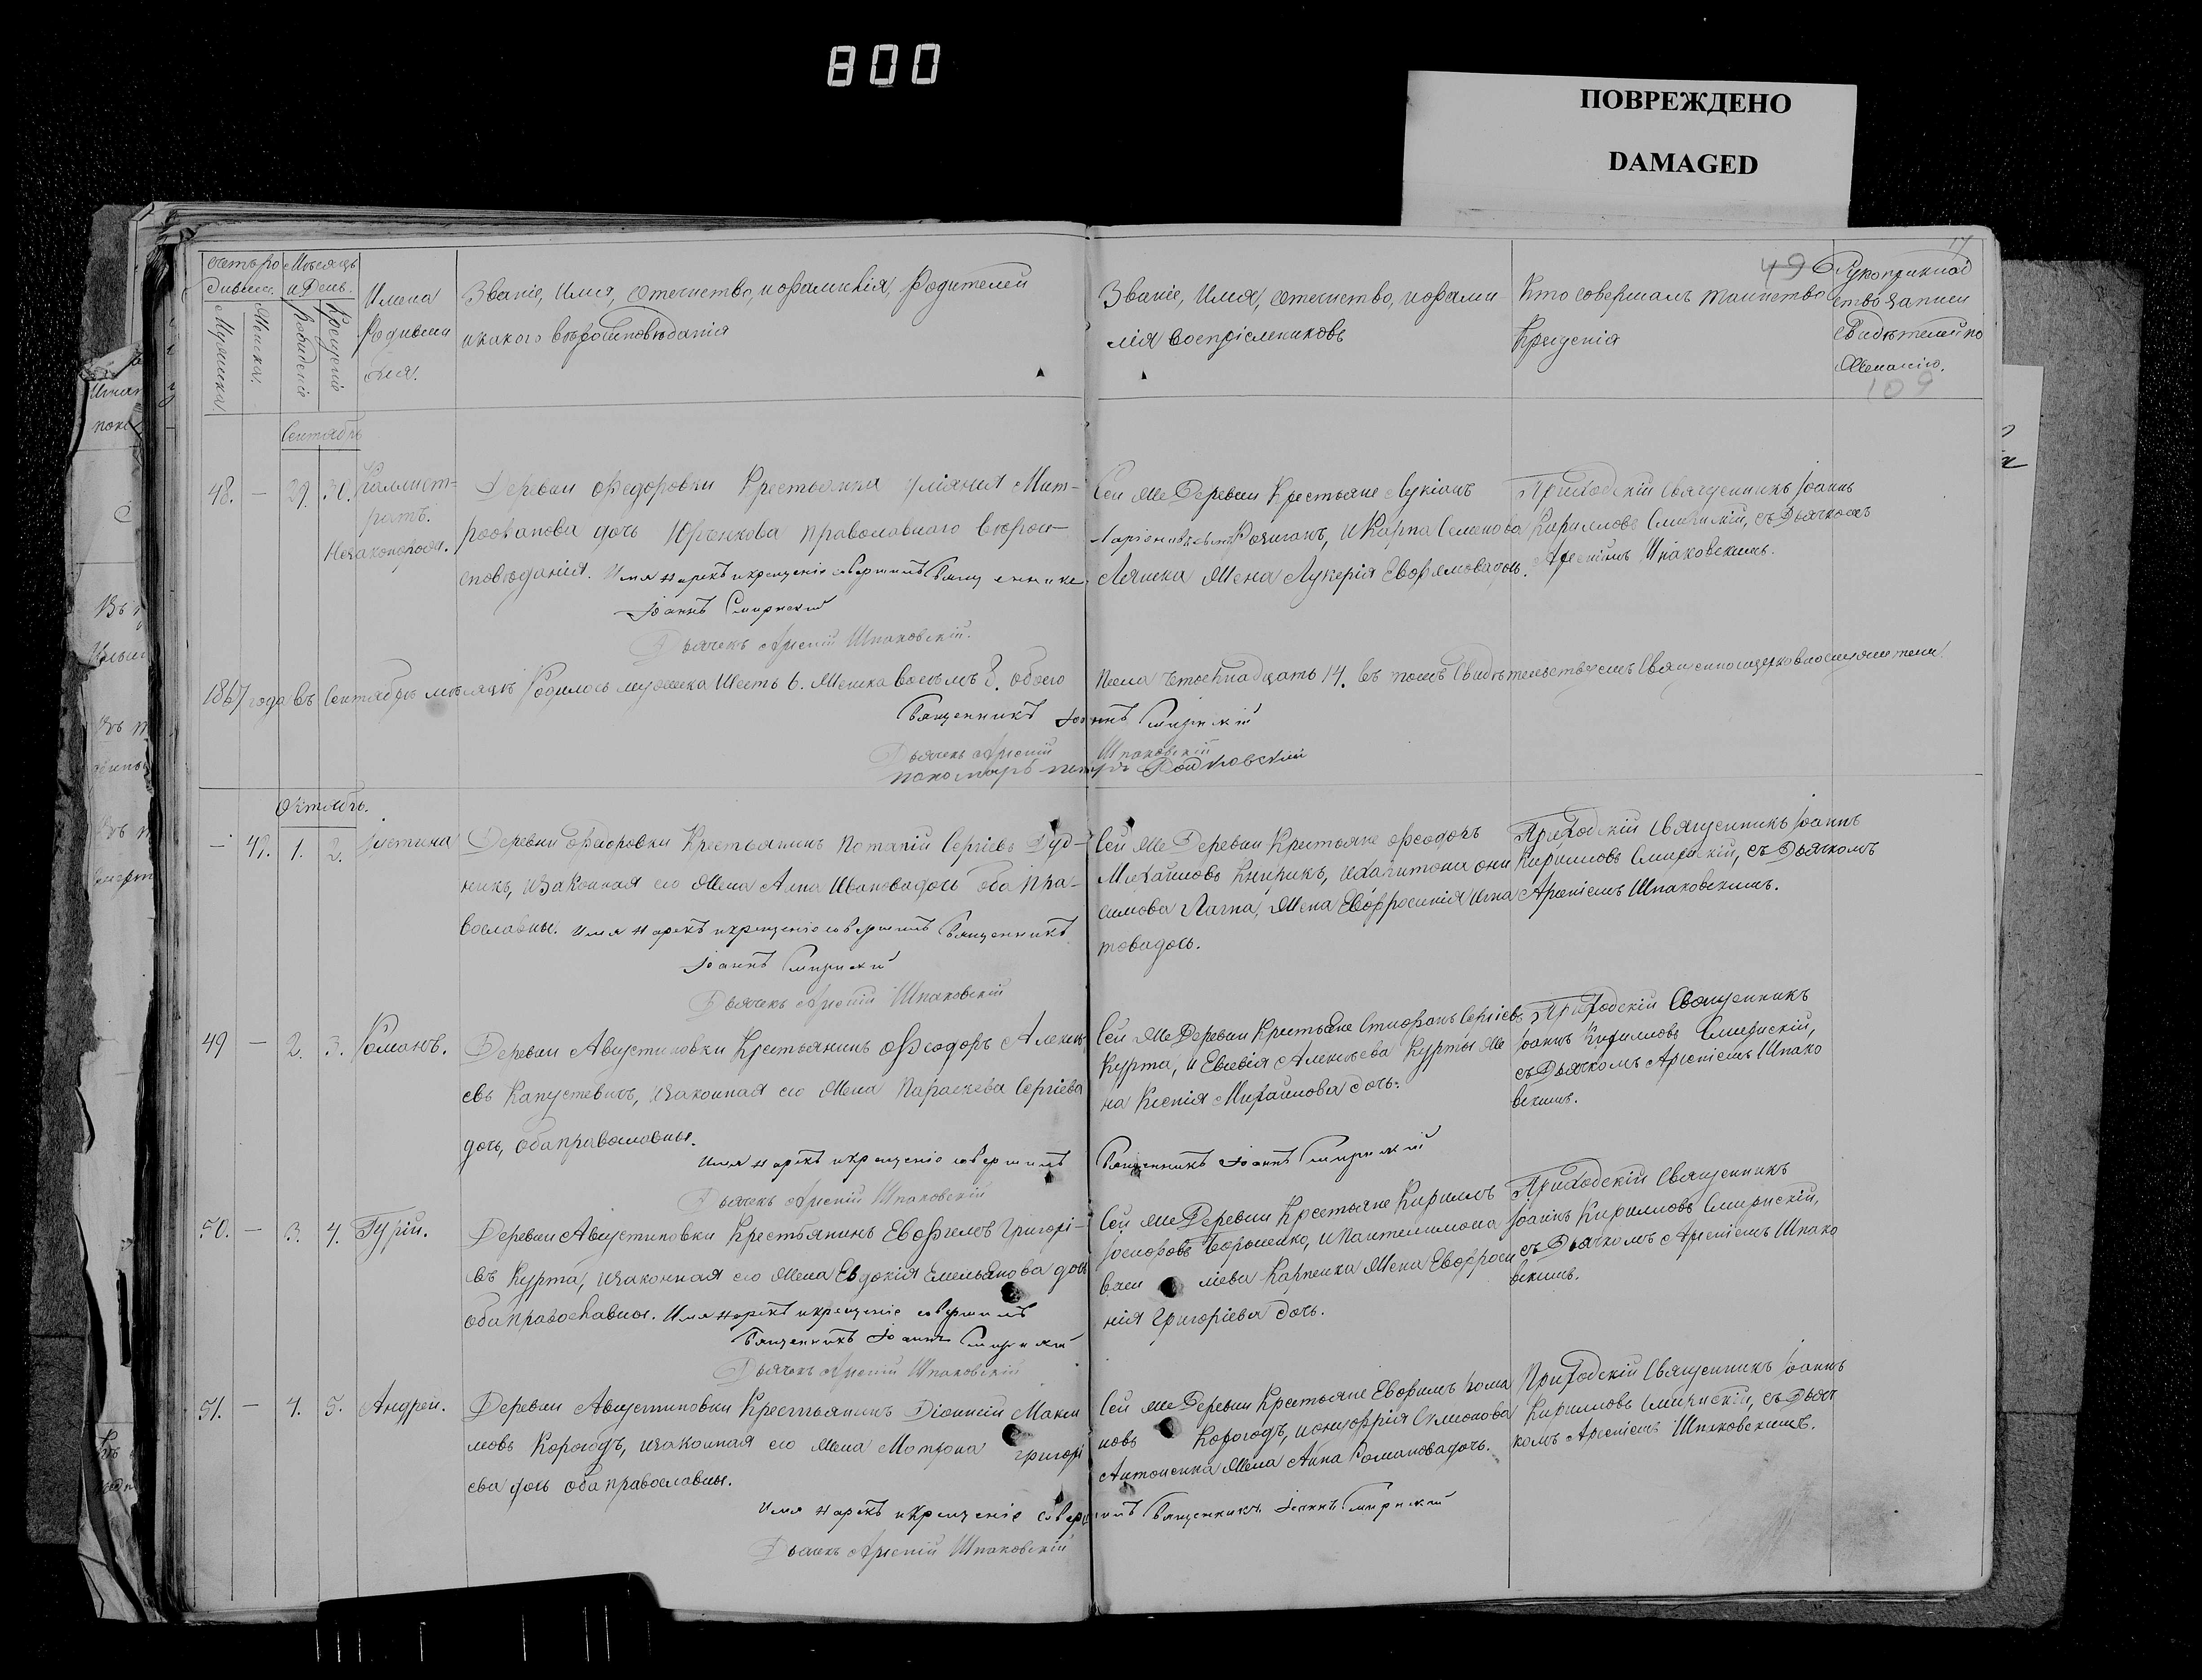 800
ПОВРЕЖДЕНО
DAMAGED
17
49
109
Мѣсяцъ
и День.
Мужеска
Женска.
Рожденія
Крещенія
Имена
Родивши
Званіе, Имя, Отечество, и фамилія, Родителей
и какого вѣроисповѣданія
Званіе, Имя, Отечество, и фами-
лія Воспріемниковъ
Кто совершалъ таинство
Крещенія
Рукоприклад
ство записи
Свидѣтелей по
Желанію.
Сентябрь
48. — 29. 30. Каллист-
ратъ.
Незаконорожд.
Деревни Федоровки Крестьянка Уліянія Мит-
рофанова дочь Юрченкова православнаго вѣрои-
сповѣданія. Имя нарекъ и крещеніе совершилъ Священникъ
Іоаннъ Смирнскій
Дьячекъ Арсеній Шпаковскій.
Сей же Деревни Крестьяне Лукіанъ
и Карпа Семенова
Ляшка жена Лукерія Евфимова дочь.
Приходскій Священникъ Іоаннъ
Кирилловъ Смирнскій, съ Дьячкомъ
Арсеніемъ Шпаковскимъ.
1867 года въ Сентябрѣ мѣсяцѣ Родилось мужеска Шесть 6. Женска Восемь 8. обоего
Пола Четырнадцать 14. въ томъ Свидѣтельствуемъ Священно церковнослужители.
Священникъ Іоаннъ Смирнскій
Дьячекъ Арсеній Шпаковскій
пономарь Петръ
Октябрь.
— 47. 1. 2. Іустина
Деревни Федоровки Крестьянинъ Потапій Сергіевъ Дуд-
никъ, и законная его Жена Анна Иванова дочь оба пра-
вославны. Имя нарекъ и крещеніе совершилъ Священникъ
Іоаннъ Смирнскій
Дьячекъ Арсеній Шпаковскій
Сей же Деревни Крестьяне Феодоръ
Михайловъ Книрикъ, и Харитона Они
симова Лагна, Жена Евфросинія Игна
това дочь.
Приходскій Священникъ Іоаннъ
Кирилловъ Смирнскій, съ Дьячкомъ
Арсеніемъ Шпаковскимъ.
49 — 2. 3. Романъ.
Деревни Августиновки Крестьянинъ Феодоръ Алексѣ
евъ Капустевичъ, и законная его Жена Параскева Сергіева
дочь, оба православны.
Имя нарекъ и крещеніе совершилъ Священникъ Іоаннъ Смирнскій
Дьячекъ Арсеній Шпаковскій
Сей же Деревни Крестьяне Стефанъ Сергіевъ
Курта, и Евсевія Алексѣева Курты Же
на Ксенія Михайлова дочь.
Приходскій Священникъ
Іоаннъ Кирилловъ Смирнскій,
съ Дьячкомъ Арсеніемъ Шпако
вскимъ.
50. — 3. 4. Гурій.
Деревни Августиновки Крестьянинъ Евфимъ Григорі-
въ Курта, и законная его Жена Евдокія Емельянова дочь
оба православны. Имя нарекъ и крещеніе совершилъ
Священникъ Іоаннъ Смирнскій
Дьячекъ Арсеній Шпаковскій
Сей же Деревни Крестьяне Кириллъ
и Пантелимона
Васи ліева Карпенка Жена Евфроси
нія Григоріева дочь.
Приходскій Священникъ
Іоаннъ Кирилловъ Смирнскій,
съ Дьячкомъ Арсеніемъ Шпако
вскимъ.
51. — 4. 5. Андрей.
Деревни Августиновки Крестьянинъ Діонисій Макси
мовъ Корогодъ, и законная его Жена Матрона Григорі
ева дочь оба православны.
Имя нарекъ и крещеніе совершилъ Священникъ Іоаннъ Смирнскій
Дьячекъ Арсеній Шпаковскій
Сей же Деревни Крестьяне Евфимъ Рома
новъ Корогодъ, и Онуфрія
Антоненка Жена Анна Романова дочь.
Приходскій Священникъ Іоаннъ
Кирилловъ Смирнскій, съ Дьяч
комъ Арсеніемъ Шпаковскимъ.